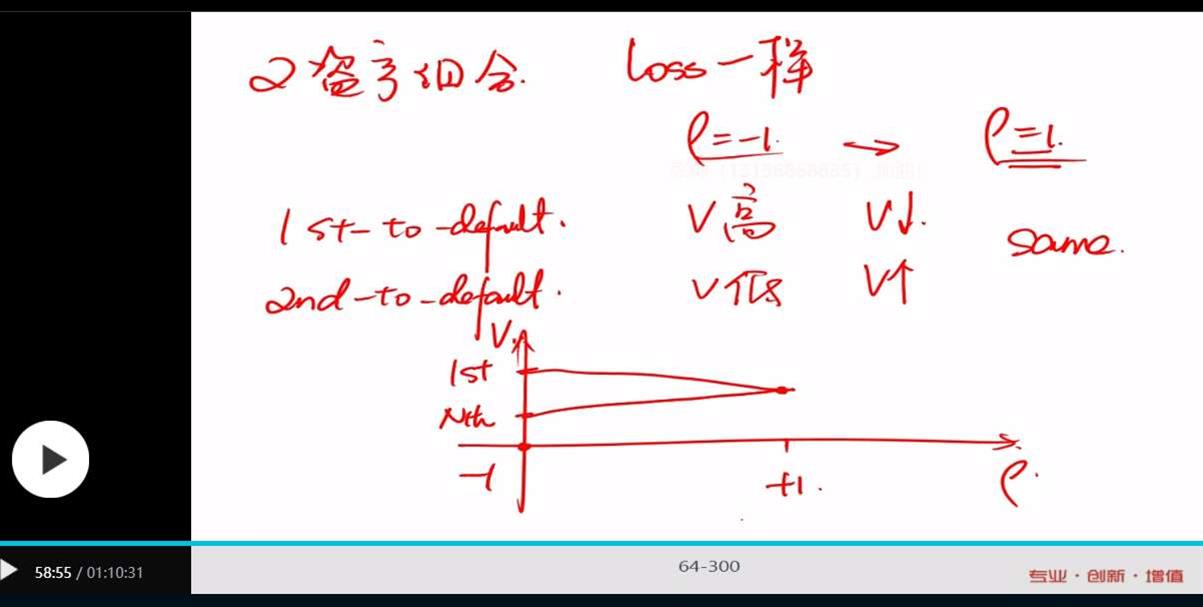 2资产组合. Loss一样
ρ=-1. → ρ=1.
1st-to-default. V高 V↓. same.
2nd-to-default. V低 V↑
V
1st
Nth
-1 +1. ρ.
58:55 / 01:10:31
64-300
专业·创新·增值